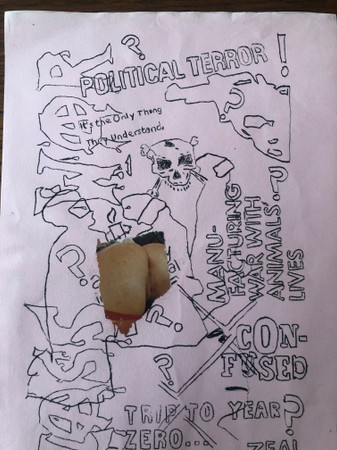 POLITICAL TERROR!
it's the Only Thing
They Understand.
MANU-
FACTURING
WAR WITH
ANIMALS'
LIVES
?
CON-
FUSED
TRIP TO YEAR?
ZERO...